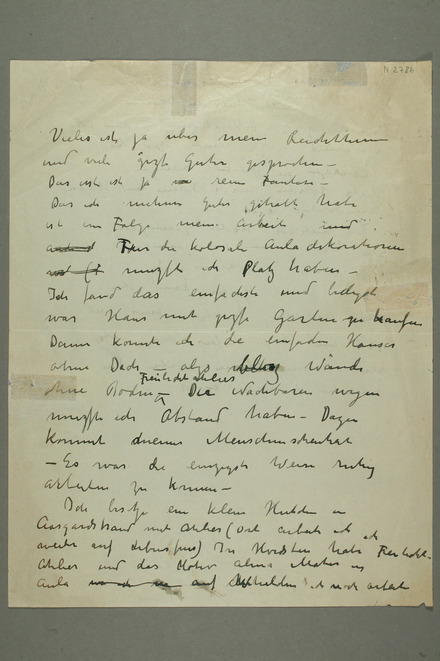 N 2786
Vieles ist ja über mein Reichthum
und viele Güter gesprochen –
Das ist ja rein Fantasie –
Das ich mehrere Güter gehabt habe
ist im Folge mein Arbeit und
Für die kolosale Auladekorationen
mußte ich Platz haben –
Ich fand das einfachste und billigste
war Haus mit Garten zu kaufen
Dann konnte ich die einfachen Hauser
ohne Dach – also Wände
Freilichtateliers
ohne Boden – Die Nachbaren wegen
mußte ich Abstand haben – Dazu
kommt Menschenscheuheit
– Es war die einzigste Weise richtig
arbeiten zu können –
Ich besitze ein klein in
Aasgardstrand mit Atelier (Dort arbeite ich
weiter auf Lebensfries) In Hvidsten habe Freilicht-
Atelier und das Motiv alma Mater in
Aula auf ich noch arbeite